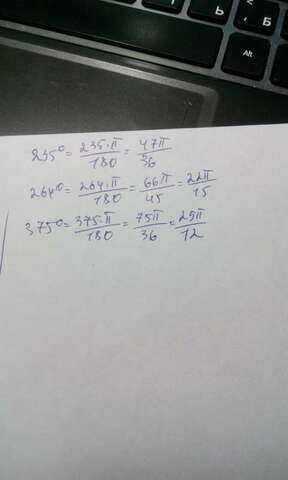 Б
Alt
235° = 235·π/180 = 47π/36
264° = 264·π/180 = 66π/45 = 22π/15
375° = 375·π/180 = 75π/36 = 25π/12